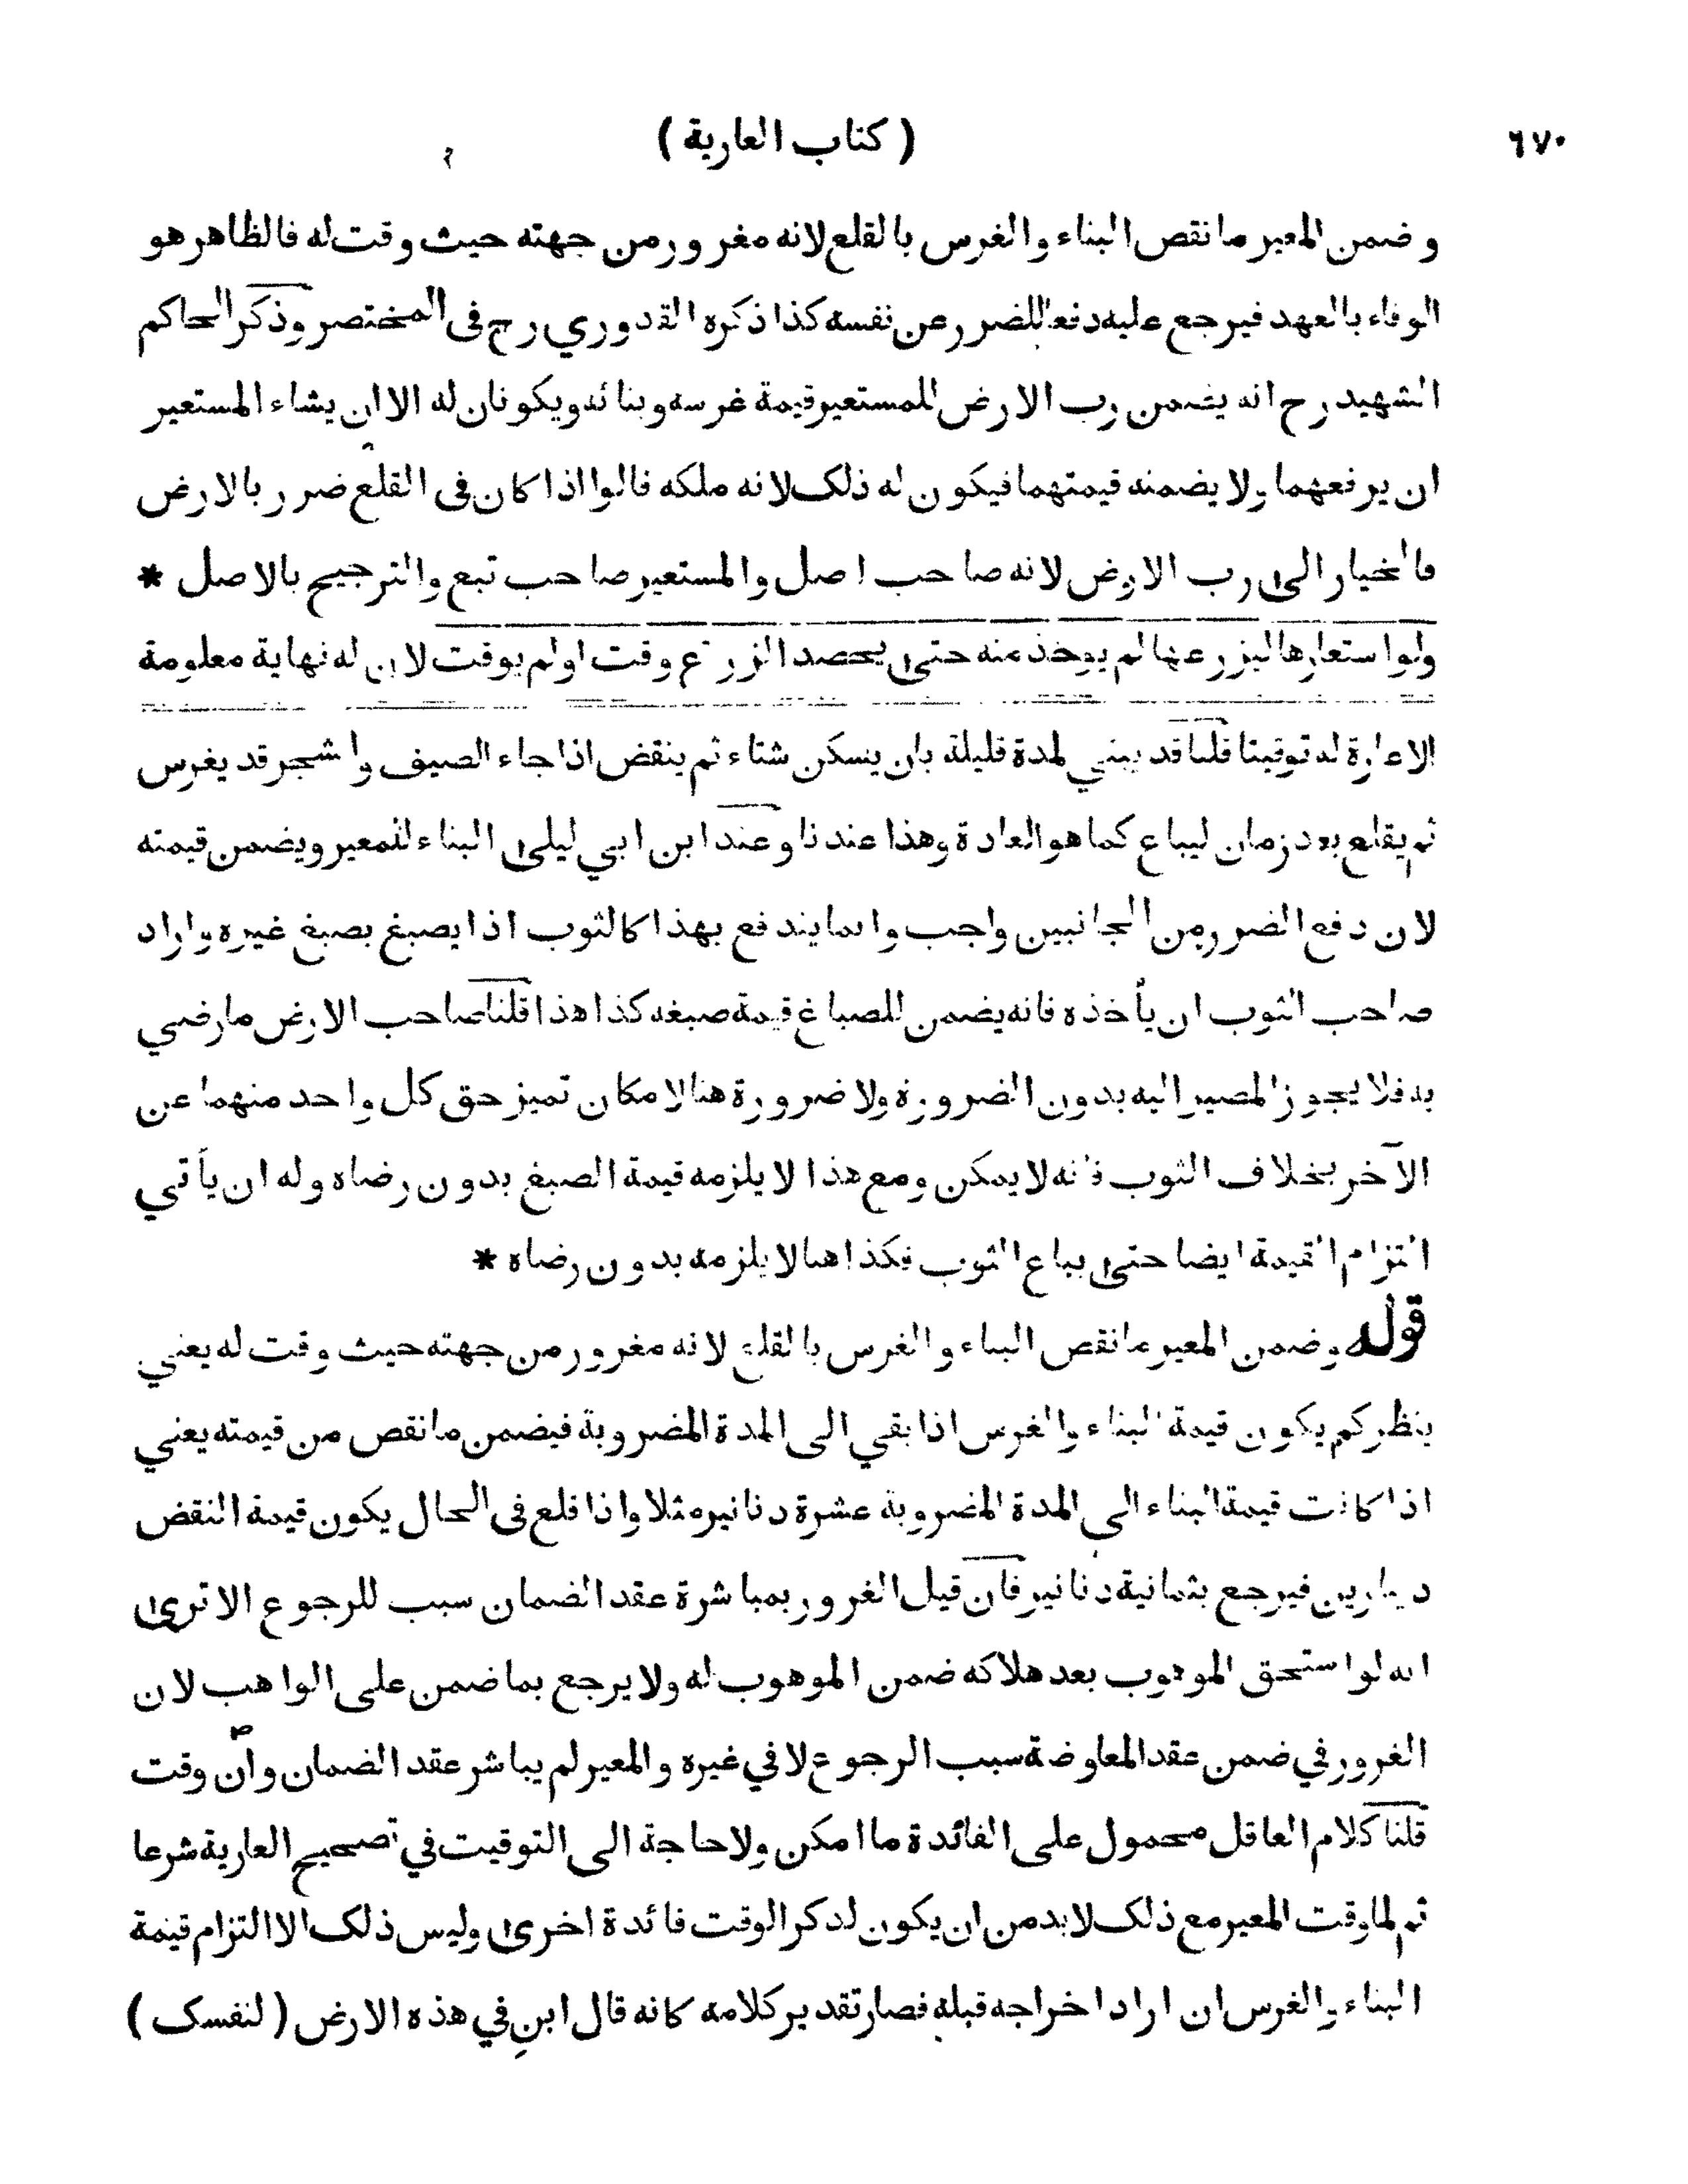 ٦٧٠
( كتاب العارية )
وضمن المعير ما نقص البناء والغرس بالقلع لانه مغرور من جهته حيث وقت له فالظاهر هو
الوفاء بالعهد فيرجع عليه دفعا للضرر عن نفسه كذا ذكره القدوري رح في المختصر وذكر الحاكم
الشهيد رح انه يضمن رب الارض للمستعير قيمة غرسه وبنائه ويكونان له الا ان يشاء المستعير
ان يرفعهما ولا يضمنه قيمتهما فيكون له ذلك لانه ملكه قالوا اذا كان في القلع ضرر بالارض
فالخيار الى رب الارض لانه صاحب اصل والمستعير صاحب تبع والترجيح بالاصل *
ولو استعارها ليزرعها لم يوخذ منه حتى يحصد الزرع وقت اولم يوقت لان له نهاية معلومة
الاعارة له توقيتا قلنا قد يبني لمدة قليلة بان يسكن شتاء ثم ينقض اذا جاء الصيف والشجر قد يغرس
ثم يقلع بعد زمان ليباع كما هو العادة وهذا عندنا وعند ابن ابي ليلى البناء للمعير ويضمن قيمته
لان دفع الضرر من الجانبين واجب وانما يندفع بهذا كالثوب اذا يصبغ بصبغ غيره واراد
صاحب الثوب ان يأخذه فانه يضمن للصباغ قيمة صبغه كذا هذا قلنا صاحب الارض ما رضي
به فلا يجوز المصير اليه بدون الضرورة ولا ضرورة هنا لامكان تميز حق كل واحد منهما عن
الآخر بخلاف الثوب فانه لا يمكن ومع هذا لا يلزمه قيمة الصبغ بدون رضاه وله ان يأتي
التزام القيمة ايضا حتى يباع الثوب فكذا هنا لا يلزمه بدون رضاه *
قوله وضمن المعير ما نقص البناء والغرس بالقلع لانه مغرور من جهته حيث وقت له يعني
ينظر كم يكون قيمة البناء والغرس اذا بقي الى المدة المضروبة فيضمن ما نقص من قيمته يعني
اذا كانت قيمة البناء الى المدة المضروبة عشرة دنانير مثلا واذا قلع في الحال يكون قيمة النقض
دينارين فيرجع بثمانية دنانير فان قيل الغرور بمباشرة عقد الضمان سبب للرجوع الا ترى
انه لو استحق الموهوب بعد هلاكه ضمن الموهوب له ولا يرجع بما ضمن على الواهب لان
الغرور في ضمن عقد المعاوضة سبب الرجوع لا في غيره والمعير لم يباشر عقد الضمان وان وقت
قلنا كلام العاقل محمول على الفائدة ما امكن ولا حاجة الى التوقيت في تصحيح العارية شرعا
ثم لما وقت المعير مع ذلك لا بد من ان يكون لذكر الوقت فائدة اخرى وليس ذلك الا التزام قيمة
البناء والغرس ان اراد اخراجه قبله فصار تقدير كلامه كانه قال ابنِ في هذه الارض ( لنفسك )